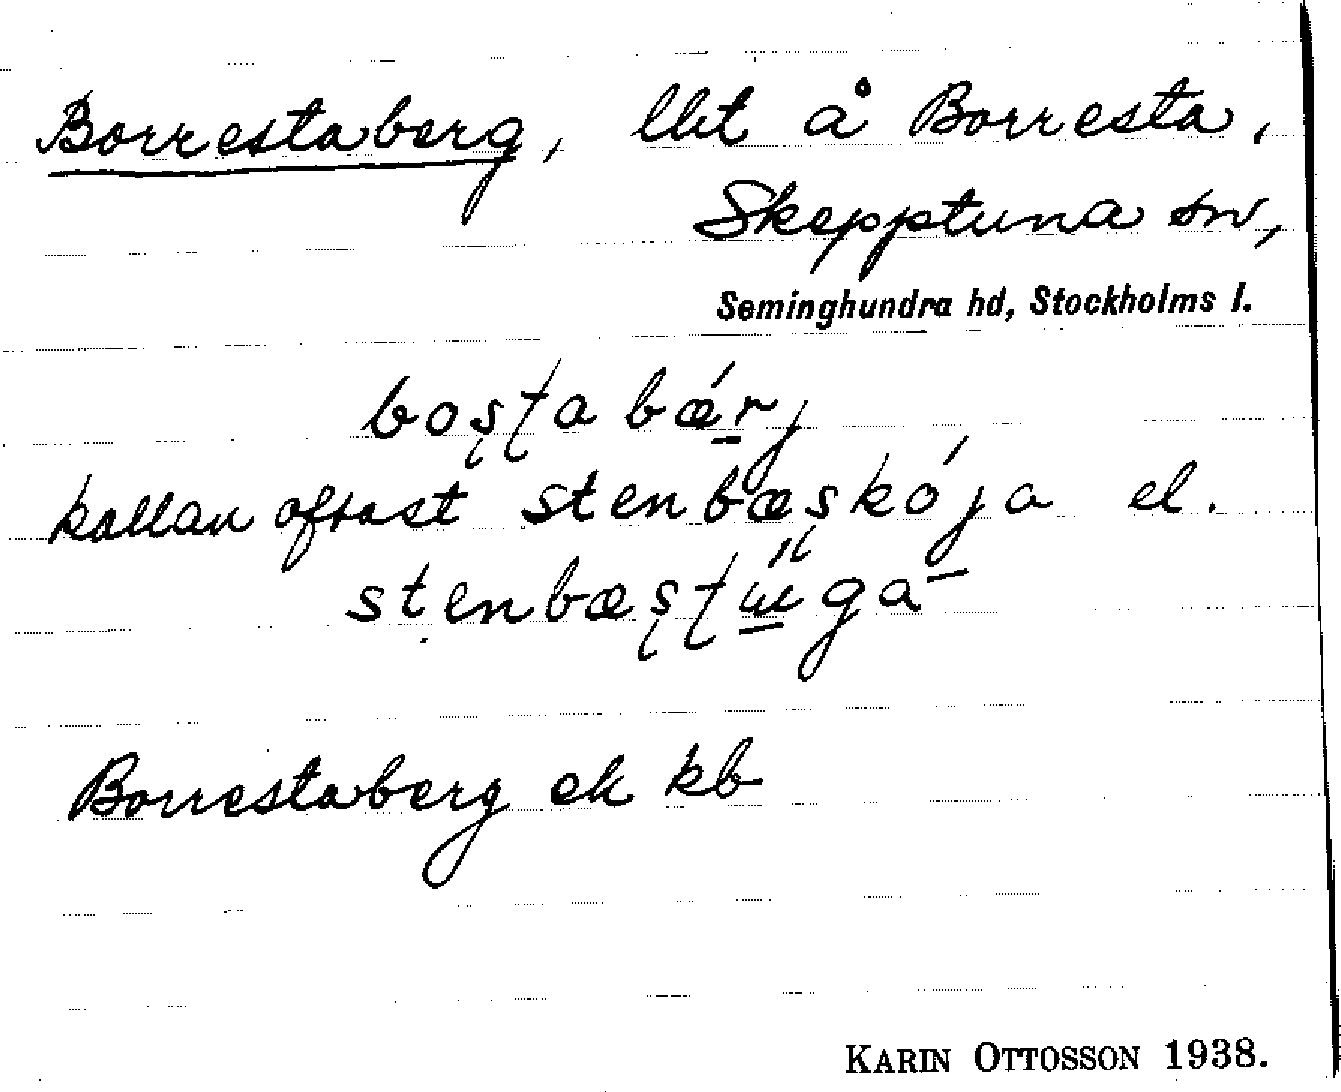 Borrestaberg, lht å Borresta,
Skepptuna sn,
Seminghundra hd, Stockholms l.
boʂʈa bǽrj
kallan oftast stenbæʂkója el.
stenbæʂʈɯ̋ga
Borrestaberg ek kb
KARIN OTTOSSON 1938.